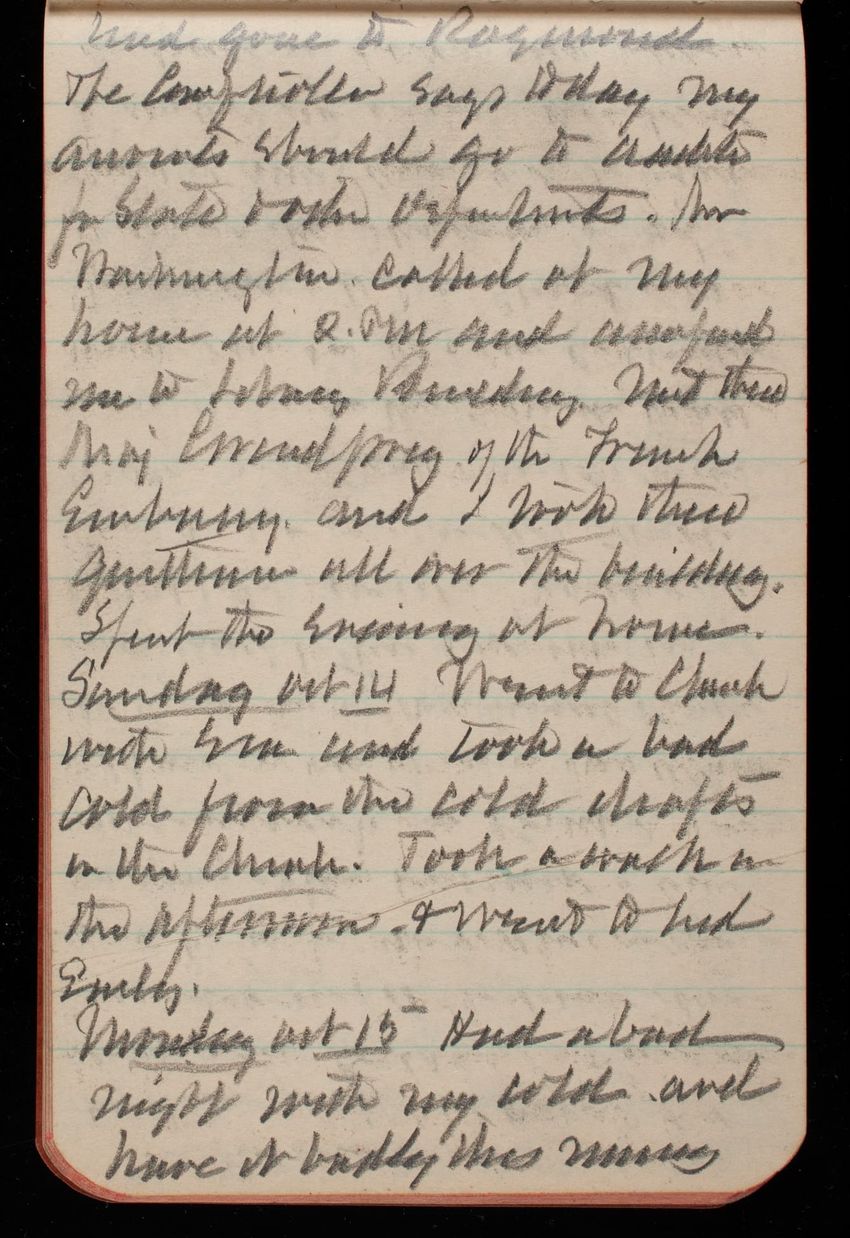 had gone to Raymond
The Comptroller says today my
accounts should go to Auditor
for State & other Departments. Mr
Washington called at my
house at 2. PM and accompanied
me to Library Building. Met there
Maj of the French
Embassy. and I took these
gentlemen all over the building.
Spent the Evening at home.
Sunday Oct 14 Went to Church
with Eva and took a bad
Cold from the cold drafts
in the Church. Took a walk in
the afternoon & went to bed
Early.
Monday Oct 15 Had a bad
night with my cold and
have it badly this morning